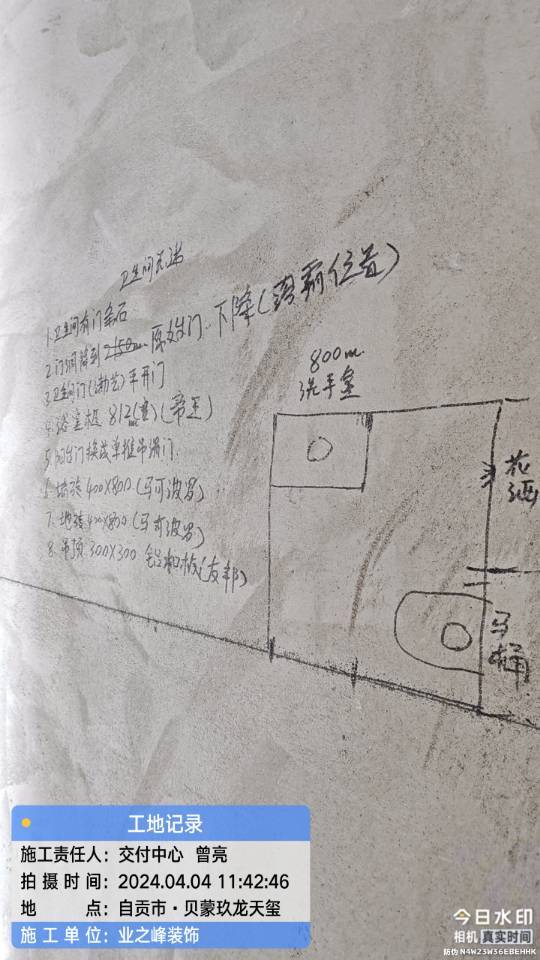 卫生间交底
1.卫生间有门条石
2.门洞 到 2150m 原始门.下降(浴霸位置)
3.卫生间门(渤艺)平开门
4.浴室柜 812m(宽)(帝王)
5. 门换成单推吊滑门.
6.墙砖400X800(马可波罗)
7.地砖400X800(马可波罗)
8.吊顶300X300 铝扣板(友邦)
800m
洗手盆
花洒
马桶
工地记录
施工责任人：交付中心 曾亮
拍摄时间：2024.04.04 11:42:46
地 点：自贡市·贝蒙玖龙天玺
施工单位：业之峰装饰
今日水印
相机 真实时间
防伪 N4W23W36EBEHHK